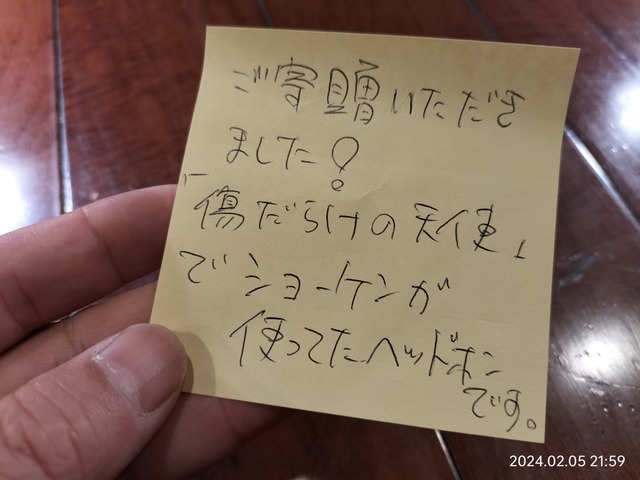 ご寄贈いただき
ました!
「傷だらけの天使」
でショーケンが
使ってたヘッドホン
です。
2024.02.05 21:59